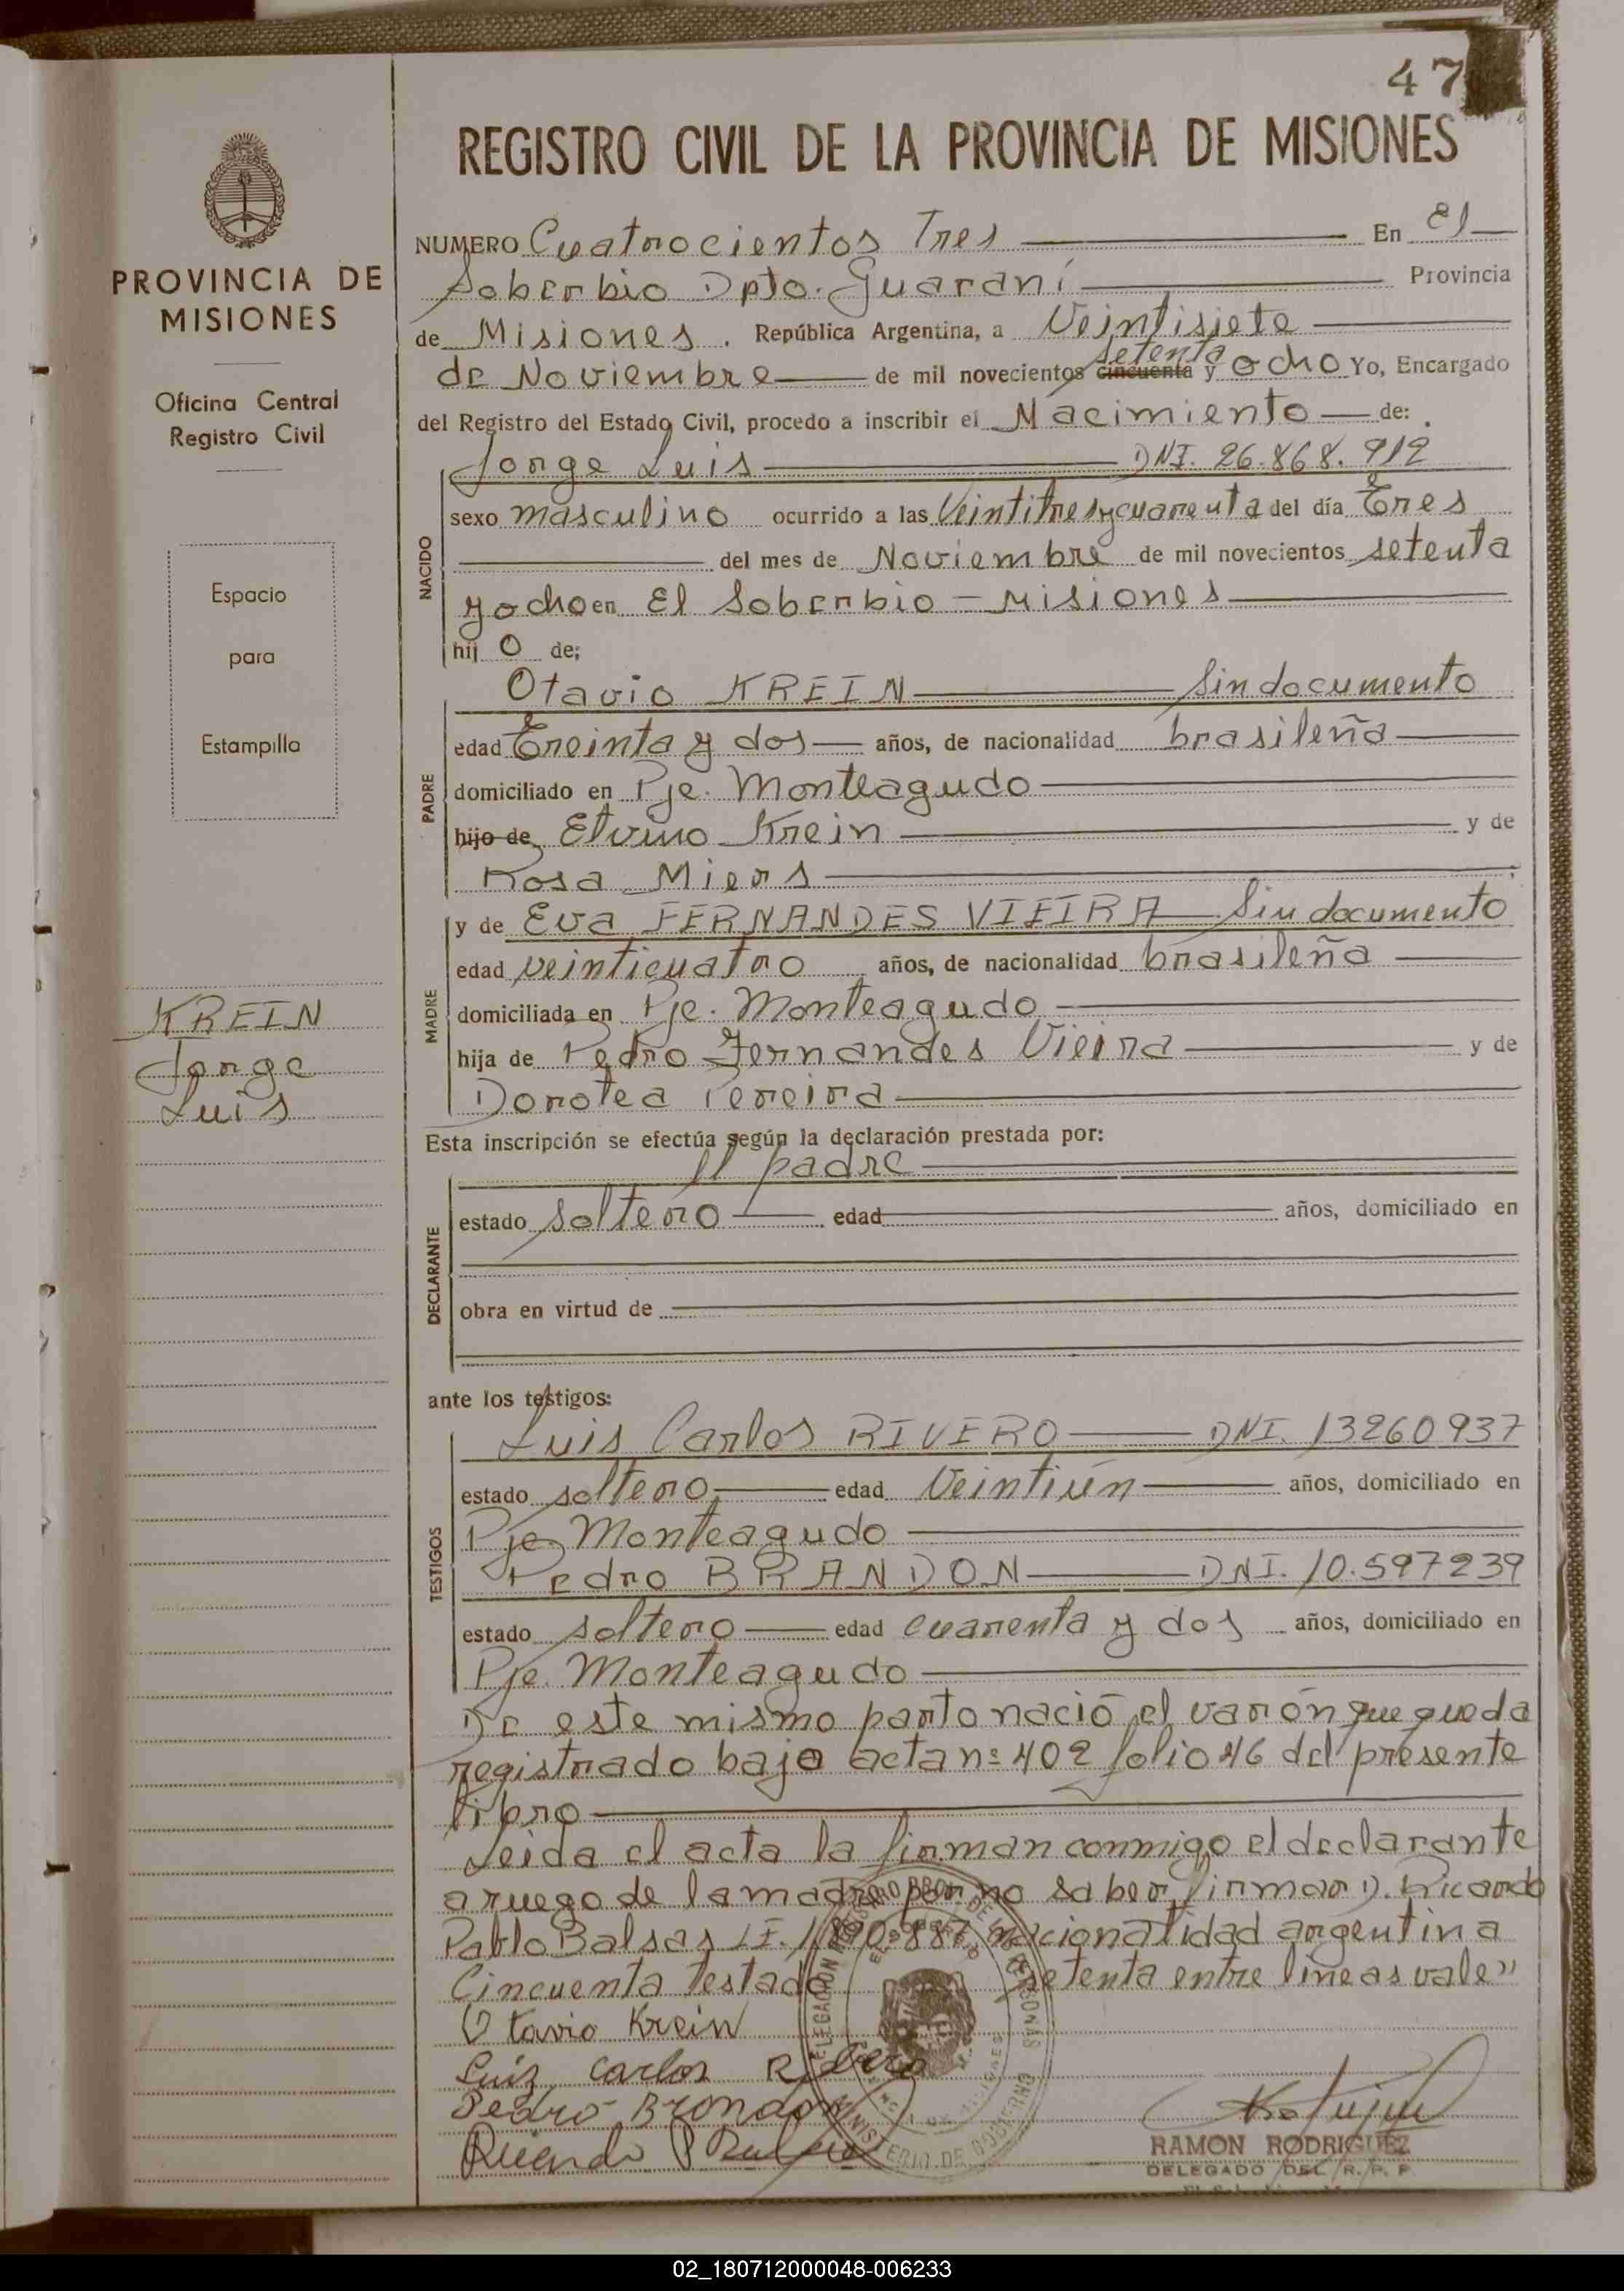 47
REGISTRO CIVIL DE LA PROVINCIA DE MISIONES
PROVINCIA DE
MISIONES
Oficina Central
Registro Civil
Espacio
para
Estampilla
KREIN
Jorge
Luis
NUMERO Cuatrocientos Tres En El
Soberbio Dpto. Guaraní Provincia
de Misiones. República Argentina, a Veintisiete
setenta
de Noviembre de mil novecientos cincuenta y ocho Yo, Encargado
del Registro del Estado Civil, procedo a inscribir el Nacimiento de:
Jorge Luis DNI. 26.868.912
NACIDO
sexo masculino ocurrido a las Veintitres y cuarenta del día Tres
del mes de Noviembre de mil novecientos setenta
y ocho en El Soberbio - Misiones
hij o de;
Otavio KREIN Sin documento
PADRE
edad Treinta y dos años, de nacionalidad brasileña
domiciliado en Pje. Monteagudo
hijo de Etvino Krein y de
Rosa Miers
y de Eva FERNANDES VIEIRA Sin documento
MADRE
edad veinticuatro años, de nacionalidad brasileña
domiciliada en Pje. Monteagudo
hija de Pedro Fernandes Vieira y de
Dorotea Pereira
Esta inscripción se efectúa según la declaración prestada por:
el padre
DECLARANTE
estado soltero edad años, domiciliado en
obra en virtud de
ante los testigos:
Luis Carlos RIVERO DNI. 13260937
TESTIGOS
estado soltero edad Veintiún años, domiciliado en
Pje. Monteagudo
Pedro BRANDON DNI. 10.597239
estado soltero edad cuarenta y dos años, domiciliado en
Pje. Monteagudo
De este mismo parto nació el varón que queda
registrado bajo acta nº 402 folio 46 del presente
libro
Leida el acta la firman conmigo el declarante
a ruego de la madre por no saber firmar D. Ricardo
Pablo Balsas LE. 1.890.887, nacionalidad argentina
Cincuenta testado setenta entre lineas vale"
Otavio Krein
Luiz Carlos Rivero
Pedro Brondon
Ricardo P
RAMON RODRIGUEZ
DELEGADO DEL R. P. P
02_180712000048-006233